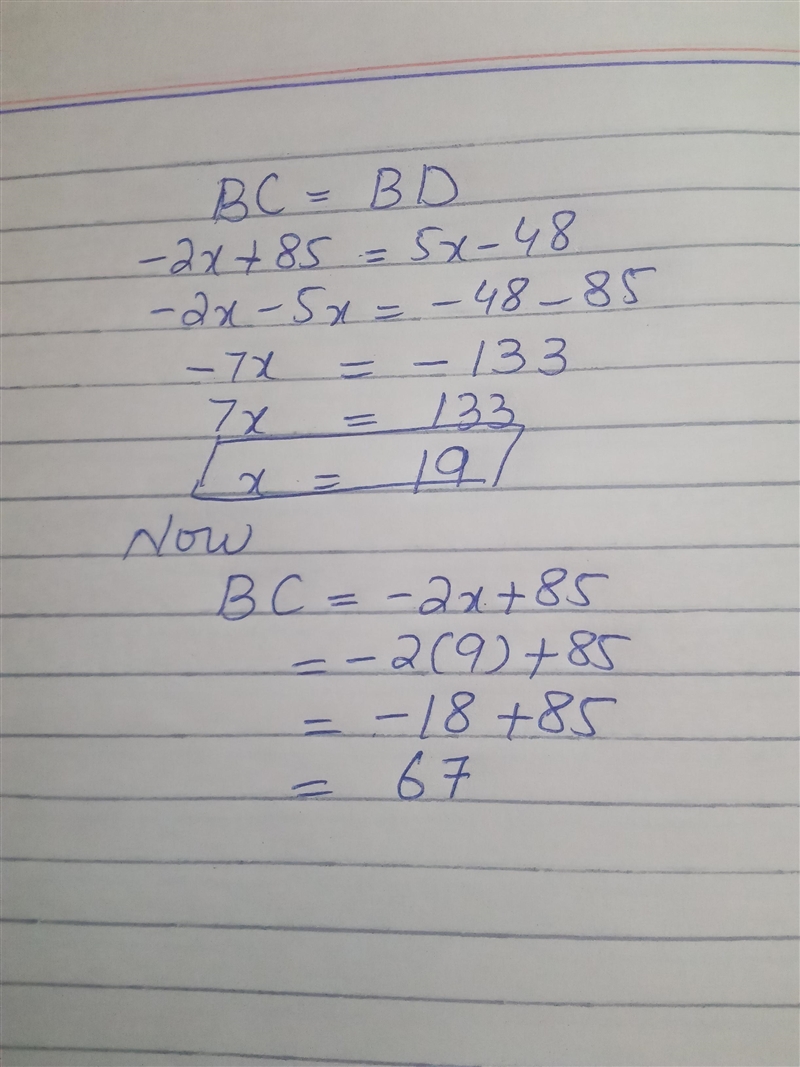 BC = BD
-2x+85 = 5x-48
-2x-5x = -48-85
-7x = -133
7x = 133
x = 19
Now
BC = -2x+85
= -2(9)+85
= -18+85
= 67